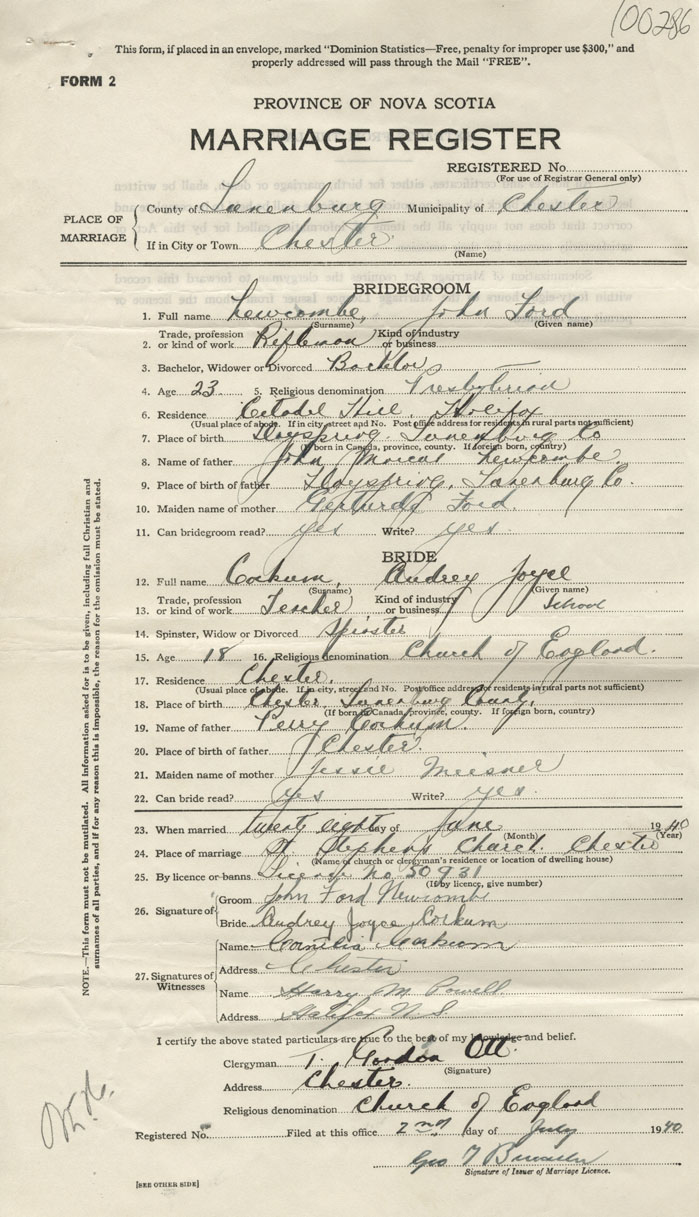 100286
This form, if placed in an envelope, marked "Dominion Statistics—Free, penalty for improper use $300," and
properly addressed will pass through the Mail "FREE".
FORM 2
PROVINCE OF NOVA SCOTIA
MARRIAGE REGISTER
REGISTERED No.
(For use of Registrar General only)
PLACE OF MARRIAGE
County of Lunenburg Municipality of Chester
If in City or Town Chester
(Name)
BRIDEGROOM
1. Full name Newcombe, John Ford
(Surname) (Given name)
Trade, profession Kind of industry
2. or kind of work Rifleman or business
3. Bachelor, Widower or Divorced Bachlor
4. Age 23 5. Religious denomination Presbyterian
6. Residence Citadel Hill, Halifax
(Usual place of abode. If in city, street and No. Post office address for residents in rural parts not sufficient)
7. Place of birth Dayspring Lunenburg Co
(If born in Canada, province, county. If foreign born, country)
8. Name of father John Marcus Newcombe
9. Place of birth of father Dayspring, Lunenburg Co.
10. Maiden name of mother Ford.
11. Can bridegroom read? yes Write? yes.
BRIDE
12. Full name Corkum, Audrey Joyce
(Surname) (Given name)
Trade, profession Kind of industry
13. or kind of work Teacher or business School
14. Spinster, Widow or Divorced Spinster
15. Age 18 16. Religious denomination Church of England.
17. Residence Chester.
(Usual place of abode. If in city, street and No. Post office address for residents in rural parts not sufficient)
18. Place of birth Chester Lunenburg County,
(If born in Canada, province, county. If foreign born, country)
19. Name of father Perry Corkum.
20. Place of birth of father Chester.
21. Maiden name of mother Jessie Meisner
22. Can bride read? yes Write? yes.
23. When married twenty eight day of June 1940
(Month) (Year)
24. Place of marriage St Stephens Church Chester
(Name of church or clergyman's residence or location of dwelling house)
25. By licence or banns License No 50931
(If by licence, give number)
26. Signature of
Groom John Ford Newcombe
Bride Audrey Joyce Corkum
27. Signatures of Witnesses
Name Corkum
Address Chester
Name Harry M Powell
Address Halifax N.S.
I certify the above stated particulars are true to the best of my knowledge and belief.
Clergyman T. Gordon Ott.
(Signature)
Address Chester.
Religious denomination Church of England
Registered No. Filed at this office 2nd day of July 1940
Geo T
Signature of Issuer of Marriage Licence.
[SEE OTHER SIDE]
NOTE.—This form must not be mutilated. All information asked for is to be given, including full Christian and
surnames of all parties, and if for any reason this is impossible, the reason for the omission must be stated.